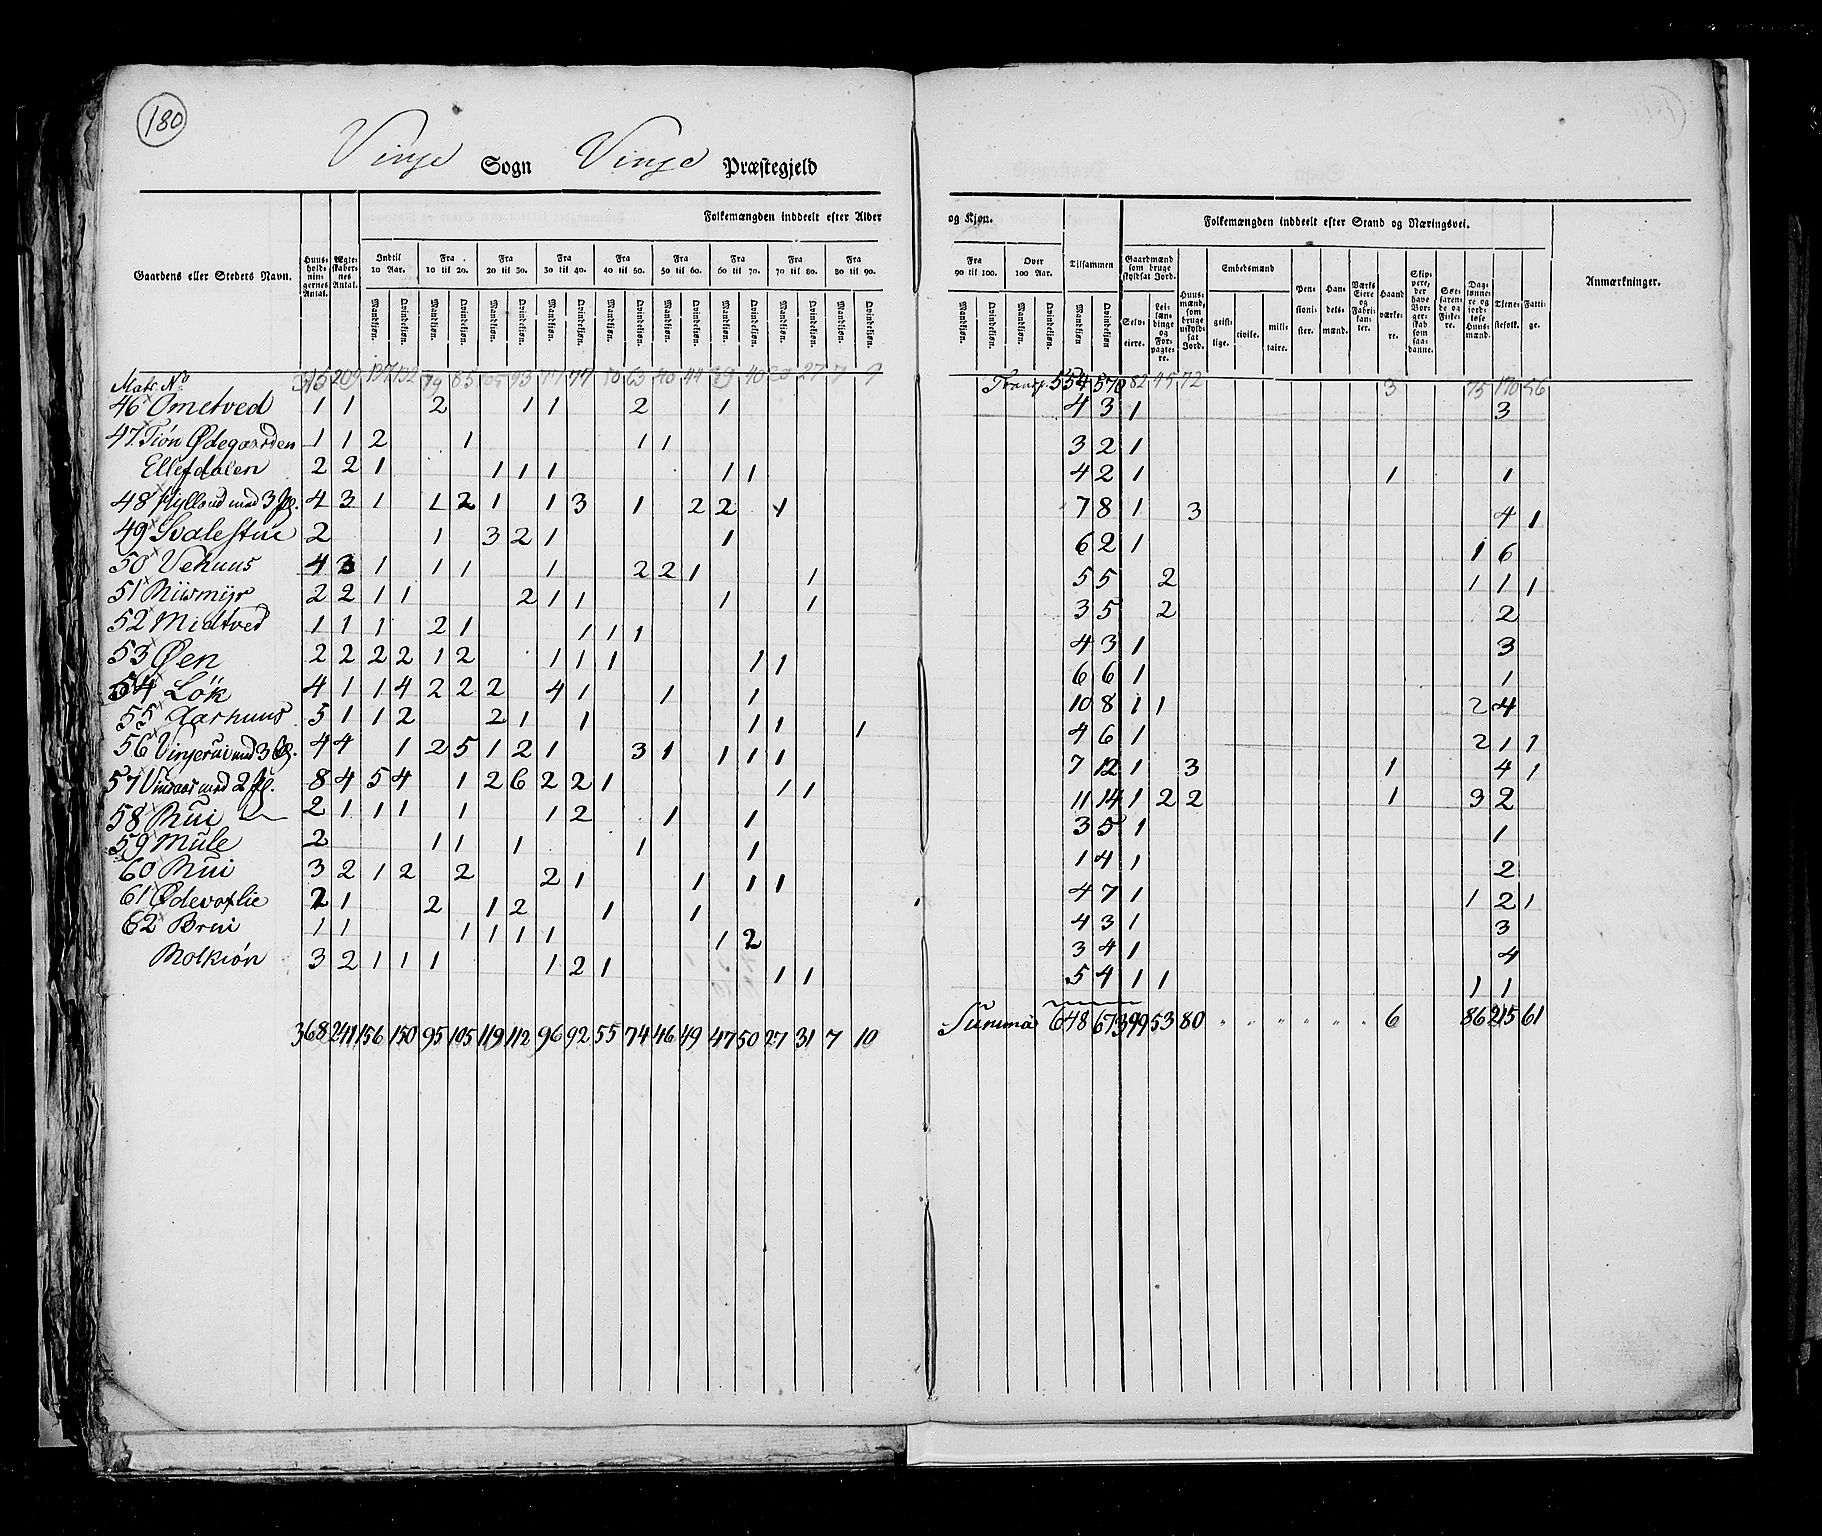 180
Vinje Sogn Vinje Præstegjeld
Folkemængden inddeelt efter Alder og Kjøn.
Folkemængden inddeelt efter Stand og Næringsvei.
Gaardens eller Stedets Navn.
Huusholdningernes Antal.
Ægteskabernes Antal.
Indtil 10 Aar.
Fra 10 til 20.
Fra 20 til 30.
Fra 30 til 40.
Fra 40 til 50.
Fra 50 til 60.
Fra 60 til 70.
Fra 70 til 80.
Fra 80 til 90.
Fra 90 til 100.
Over 100 Aar.
Tilsammen
Mandkjøn. Qvindekjøn.
Gaardmænd som bruge skyldsat Jord.
Selveiere.
Leilændinge og Forpagtere.
Huusmænd, som bruge uskyldsat Jord.
Embedsmænd
geistlige. civile. militaire.
Pensionister.
Handelsmænd.
Værks Eiere og Fabrikanter.
Haandværkere.
Skippere, der have Borgerskab som saadanne.
Søefarende og Fiskere.
Daglønnere og jordløse Huusmænd.
Tjenestefolk.
Fattige.
Anmærkninger.
Matr. No 315 209 137 132 79 85 105 93 77 77 50 63 40 44 39 40 20 27 7 9 Transp. 554 570 82 45 72 3 75 170 56
46 Ometved 1 1 2 1 1 2 1 4 3 1 3
47 Tión Ødegaarden 1 1 2 1 1 1 3 2 1
Ellefdalen 2 2 1 1 1 1 1 1 4 2 1 1 1
48 Hylland med 3 Pl. 4 3 1 1 2 1 1 3 1 2 2 1 7 8 1 3 4 1
49 Svalestue 2 1 3 2 1 1 6 2 1 1 6
50 Vehuus 4 3 1 1 1 1 2 2 1 1 5 5 2 1 1 1
51 Miismijr 2 2 1 1 2 1 1 1 1 3 5 2 2
52 Midtved 1 1 1 2 1 1 1 1 4 3 1 3
53 Øen 2 2 2 2 1 2 1 1 1 1 1 6 6 1 1
54 Lök 4 1 1 4 2 2 2 4 1 1 1 10 8 1 1 2 4
55 Aarhuus 5 1 1 2 2 1 1 1 1 1 4 6 1 2 1 1
56 Vinjerui med 3 Pl. 4 4 1 2 5 1 2 1 3 1 1 1 1 7 12 1 3 1 4 1
57 Vinaas med 2 Pl. 8 4 5 4 1 2 6 2 2 1 1 1 11 14 1 2 2 1 3 2
58 Rui 2 1 1 1 1 1 2 1 1 3 5 1 1
59 Mule 2 1 1 1 1 1 1 4 1 2
60 Rui 3 2 1 2 2 2 1 1 1 1 4 7 1 1 2 1
61 Ødevaslie 2 1 2 1 2 1 1 4 3 1 3
62 Brui 1 1 1 1 1 1 1 2 3 4 1 4
Botkión 3 2 1 1 1 1 2 1 1 1 5 4 1 1 1 1
368 241 156 150 95 105 119 112 96 92 55 74 46 49 47 50 27 31 7 10 Summa 648 673 99 53 80 " " " " " " 6 86 215 61